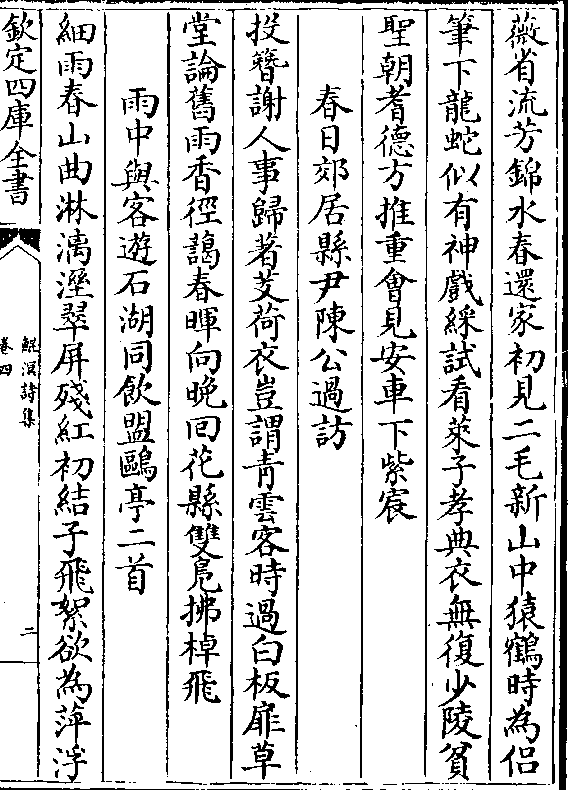 薇省流芳錦水春還家初見二毛新山中猿鶴時為侣
筆下龍蛇似有神戲綵試看萊子孝典衣無復少陵貧
聖朝耆德方推重會見安車下紫宸
春日郊居縣尹陳公過訪
投簪謝人事歸著芰荷衣豈謂青雲客時過白板扉草
堂論舊雨香徑藹春暉向晚回花縣雙凫拂棹飛
雨中與客遊石湖同飲盟鷗亭二首
細雨春山曲淋漓溼翠屏殘紅初結子飛絮欲為萍浮
欽定四庫全書
鯤溟詩集
卷四
二